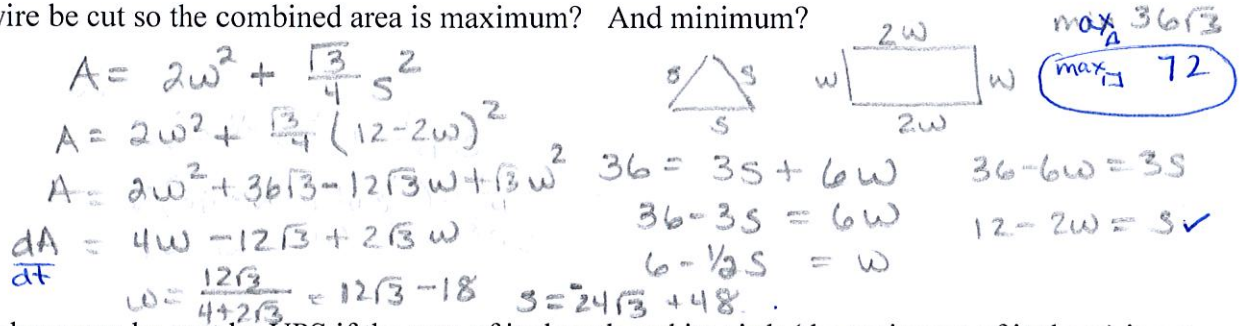 ire be cut so the combined area is maximum? And minimum?
A = 2w² + √3/4 s²
A = 2w² + √3/4 (12-2w)²
A = 2w² + 36√3 - 12√3 w + √3 w²
dA/dt = 4w - 12√3 + 2√3 w
w = 12√3/(4+2√3) = 12√3 - 18 s = -24√3 + 48.
s s
s
2w
w w
2w
max△ 36√3
max▭ 72
36 = 3s + 6w
36 - 3s = 6w
6 - ½s = w
36 - 6w = 3s
12 - 2w = s ✓